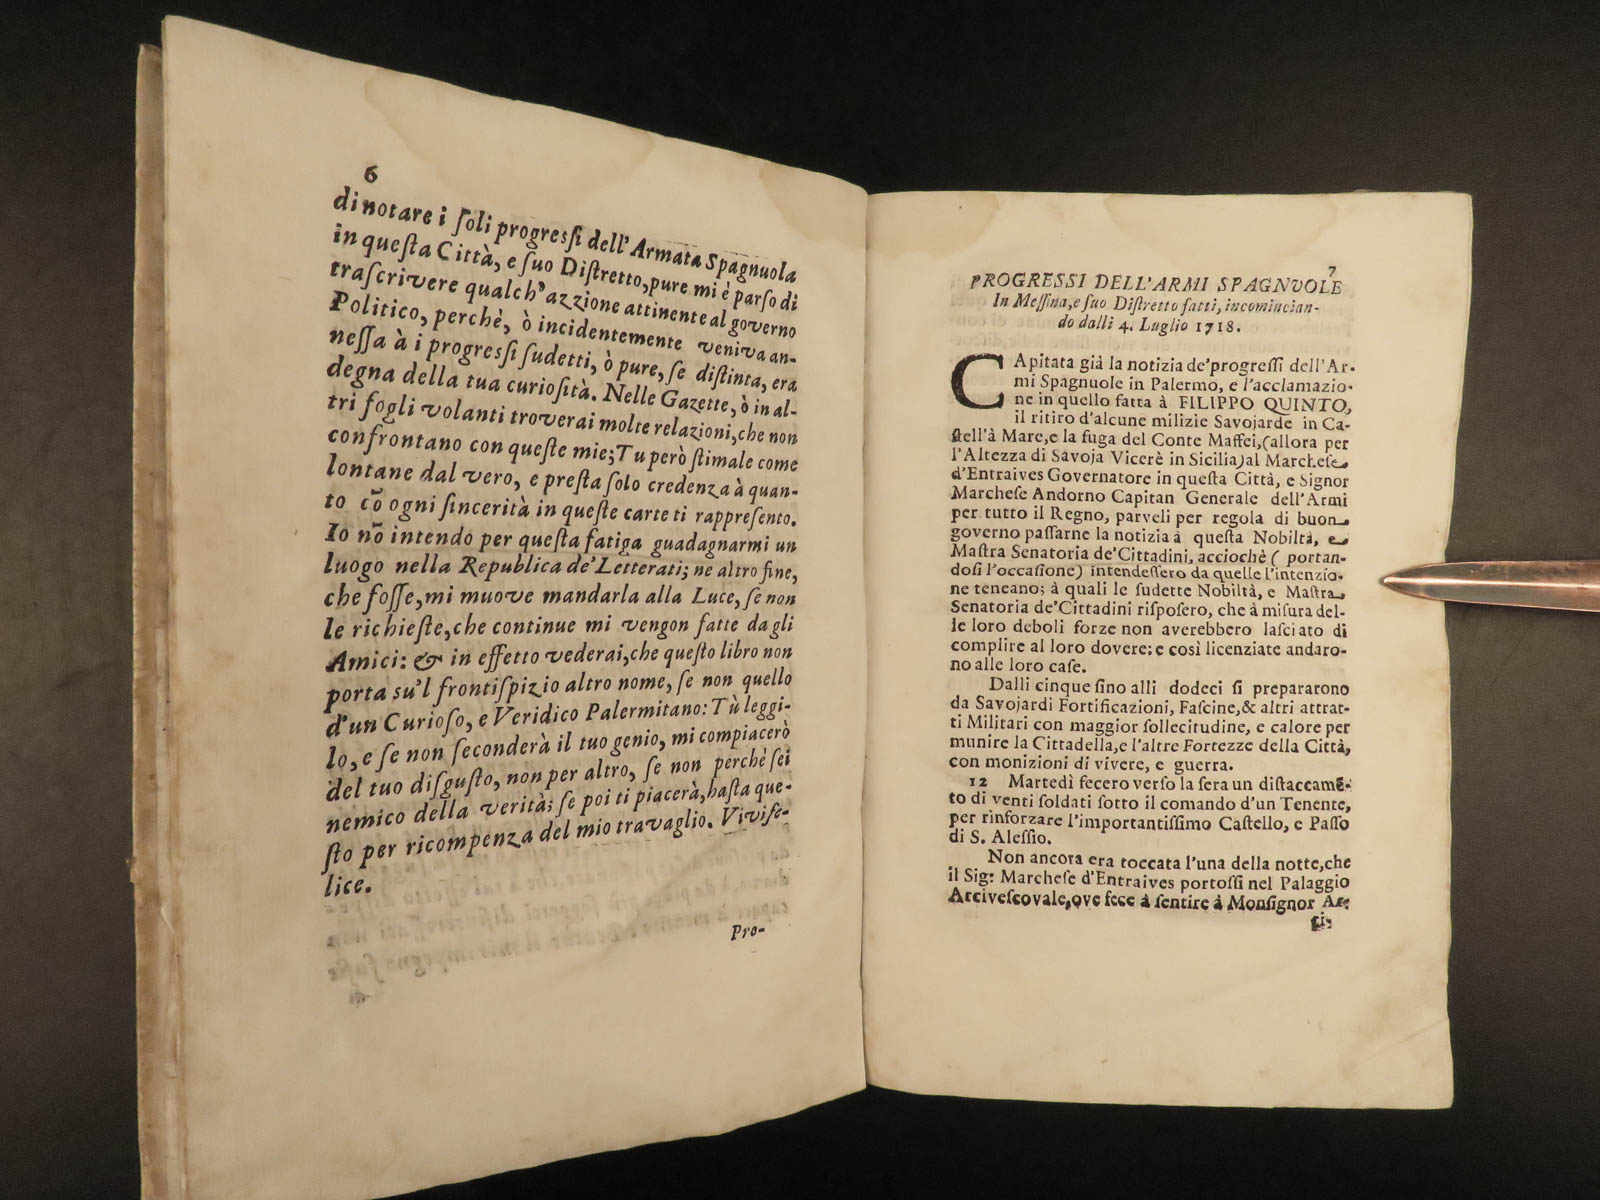 6
di notare i ſoli progreſſi dell'Armata Spagnuola
in queſta Città, e ſuo Diſtretto, pure mi è parſo di
traſcrivere qualch' azzione attinente al governo
Politico, perchè, ò incidentemente veniva an-
neſſa à i progreſſi ſudetti, ò pure, ſe diſtinta, era
degna della tua curioſità. Nelle Gazette, ò in al-
tri fogli volanti troverai molte relazioni, che non
confrontano con queſte mie; Tu però ſtimale come
lontane dal vero, e preſta ſolo credenza à quan-
to cõ ogni ſincerità in queſte carte ti rappreſento.
Io nõ intendo per queſta fatiga guadagnarmi un
luogo nella Republica de' Letterati; ne altro fine,
che foſſe, mi muove mandarla alla Luce, ſe non
le richieſte, che continue mi vengon fatte da gli
Amici: & in effetto vederai, che queſto libro non
porta su'l frontiſpizio altro nome, ſe non quello
d'un Curioſo, e Veridico Palermitano: Tù leggi-
lo, e ſe non ſeconderà il tuo genio, mi compiacerò
del tuo diſguſto, non per altro, ſe non perchè ſei
nemico della verità; ſe poi ti piacerà, baſta que-
ſto per ricompenza del mio travaglio. Vivi fe-
lice.
Pro-
7
PROGRESSI DELL'ARMI SPAGNVOLE
In Meſſina, e ſuo Diſtretto fatti, incomincian-
do dalli 4. Luglio 1718.
CApitata già la notizia de'progreſſi dell'Ar-
mi Spagnuole in Palermo, e l'acclamazio-
ne in quello fatta à FILIPPO QUINTO,
il ritiro d'alcune milizie Savojarde in Ca-
ſtell'à Mare, e la fuga del Conte Maffei, (allora per
l'Altezza di Savoja Vicerè in Sicilia) al Marcheſe
d'Entraives Governatore in queſta Città, e Signor
Marcheſe Andorno Capitan Generale dell'Armi
per tutto il Regno, parveli per regola di buon
governo paſſarne la notizia à queſta Nobiltà, e
Maſtra Senatoria de'Cittadini, acciochè ( portan-
doſi l'occaſione) intendeſſero da quelle l'intenzio-
ne teneano; à quali le ſudette Nobiltà, e Maſtra
Senatoria de'Cittadini riſpoſero, che à miſura del-
le loro deboli forze non averebbero laſciato di
complire al loro dovere: e così licenziate andaro-
no alle loro caſe.
Dalli cinque ſino alli dodeci ſi prepararono
da Savojardi Fortificazioni, Faſcine, & altri attrat-
ti Militari con maggior ſollecitudine, e calore per
munire la Cittadella, e l'altre Fortezze della Città,
con monizioni di vivere, e guerra.
12 Martedì fecero verſo la ſera un diſtaccamẽ-
to di venti ſoldati ſotto il comando d'un Tenente,
per rinforzare l'importantiſſimo Caſtello, e Paſſo
di S. Aleſſio.
Non ancora era toccata l'una della notte, che
il Sig: Marcheſe d'Entraives portoſſi nel Palaggio
Arciveſcovale, ove fece à ſentire à Monſignor Ar-
ci-